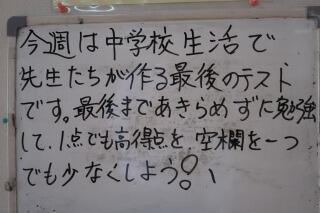 今週は中学校生活で
先生たちが作る最後のテスト
です。最後まであきらめずに勉強
して、1点でも高得点を、空欄を一つ
でも少なくしよう!